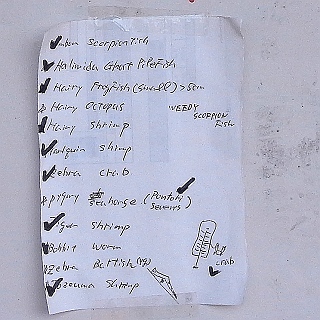 Ambon Scorpionfish
Halimida Ghost Pipefish
Hairy Frogfish (small) > 5cm
Hairy Octopus
WEEDY SCORPION Fish
Hairy shrimp
Harlquin shimp
Zebra crab
pygmy seahorse (Pontohi Severns)
Tiger shrimp
Bobbit worm
Zebra Batfish
crab
Shrimp